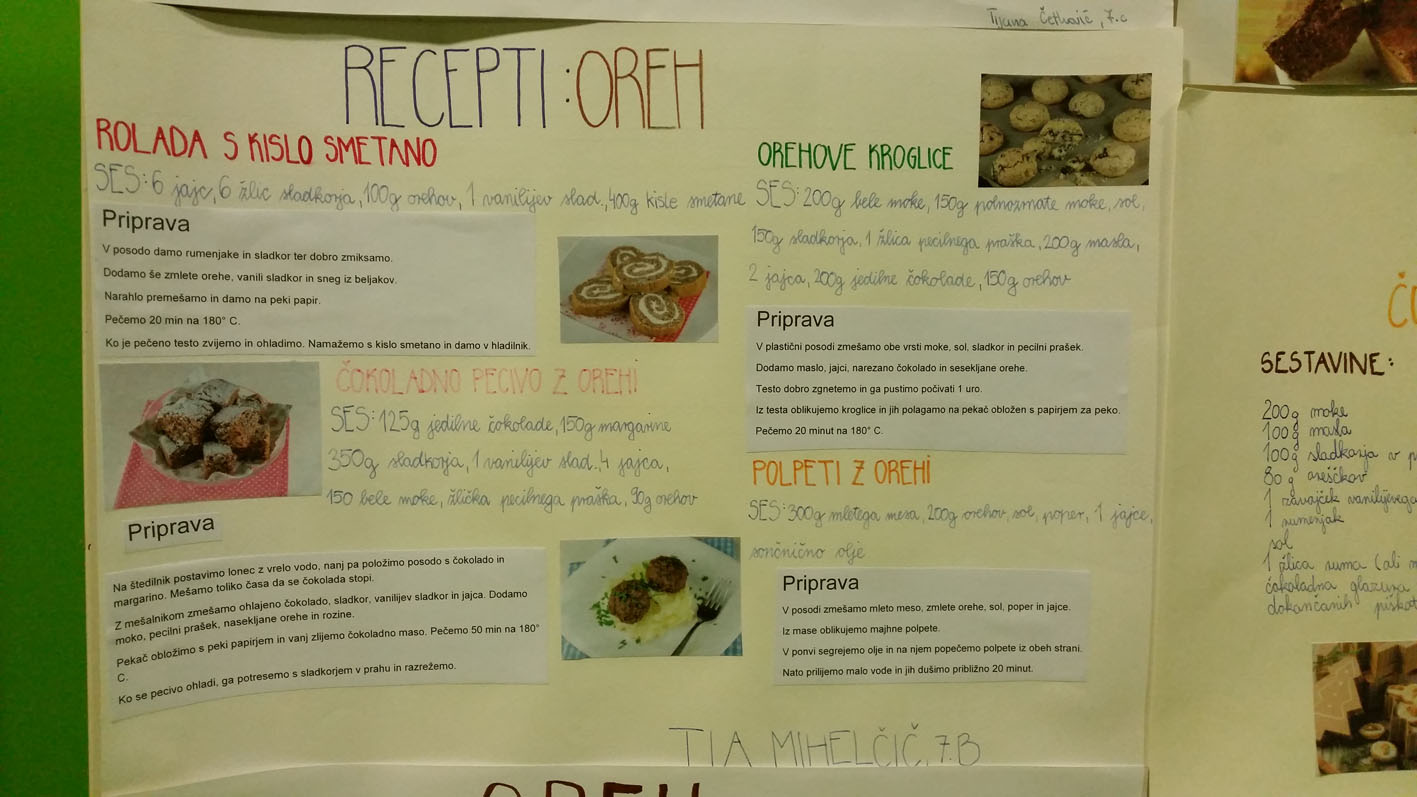 Tijana Četković, 7.c
RECEPTI: OREH
ROLADA S KISLO SMETANO
SES: 6 jajc, 6 žlic sladkorja, 100g orehov, 1 vanilijev slad., 400g kisle smetane
Priprava
V posodo damo rumenjake in sladkor ter dobro zmiksamo.
Dodamo še zmlete orehe, vanili sladkor in sneg iz beljakov.
Narahlo premešamo in damo na peki papir.
Pečemo 20 min na 180° C.
Ko je pečeno testo zvijemo in ohladimo. Namažemo s kislo smetano in damo v hladilnik.
ČOKOLADNO PECIVO Z OREHI
SES: 125g jedilne čokolade, 150g margarine
350g sladkorja, 1 vanilijev slad. 4 jajca,
150 bele moke, žlička pecilnega praška, 90g orehov
Priprava
Na štedilnik postavimo lonec z vrelo vodo, nanj pa položimo posodo s čokolado in
margarino. Mešamo toliko časa da se čokolada stopi.
Z mešalnikom zmešamo ohlajeno čokolado, sladkor, vanilijev sladkor in jajca. Dodamo
moko, pecilni prašek, nasekljane orehe in rozine.
Pekač obložimo s peki papirjem in vanj zlijemo čokoladno maso. Pečemo 50 min na 180°
C.
Ko se pecivo ohladi, ga potresemo s sladkorjem v prahu in razrežemo.
OREHOVE KROGLICE
SES: 200g bele moke, 150g polnozrnate moke, sol,
150g sladkorja, 1 žlica pecilnega praška, 200g masla,
2 jajca, 200g jedilne čokolade, 150g orehov
Priprava
V plastični posodi zmešamo obe vrsti moke, sol, sladkor in pecilni prašek.
Dodamo maslo, jajci, narezano čokolado in sesekljane orehe.
Testo dobro zgnetemo in ga pustimo počivati 1 uro.
Iz testa oblikujemo kroglice in jih polagamo na pekač obložen s papirjem za peko.
Pečemo 20 minut na 180° C.
POLPETI Z OREHI
SES: 300g mletega mesa, 200g orehov, sol, poper, 1 jajce,
sončnično olje
Priprava
V posodi zmešamo mleto meso, zmlete orehe, sol, poper in jajce.
Iz mase oblikujemo majhne polpete.
V ponvi segrejemo olje in na njem popečemo polpete iz obeh strani.
Nato prilijemo malo vode in jih dušimo približno 20 minut.
TIA MIHELČIČ, 7.B
OREH
SESTAVINE:
200g moke
100g masla
100g sladkorja v p
80 g oreščkov
1 zavojček vanilijevega
1 rumenjak
sol
1 žlica ruma (ali
čokoladna glazura